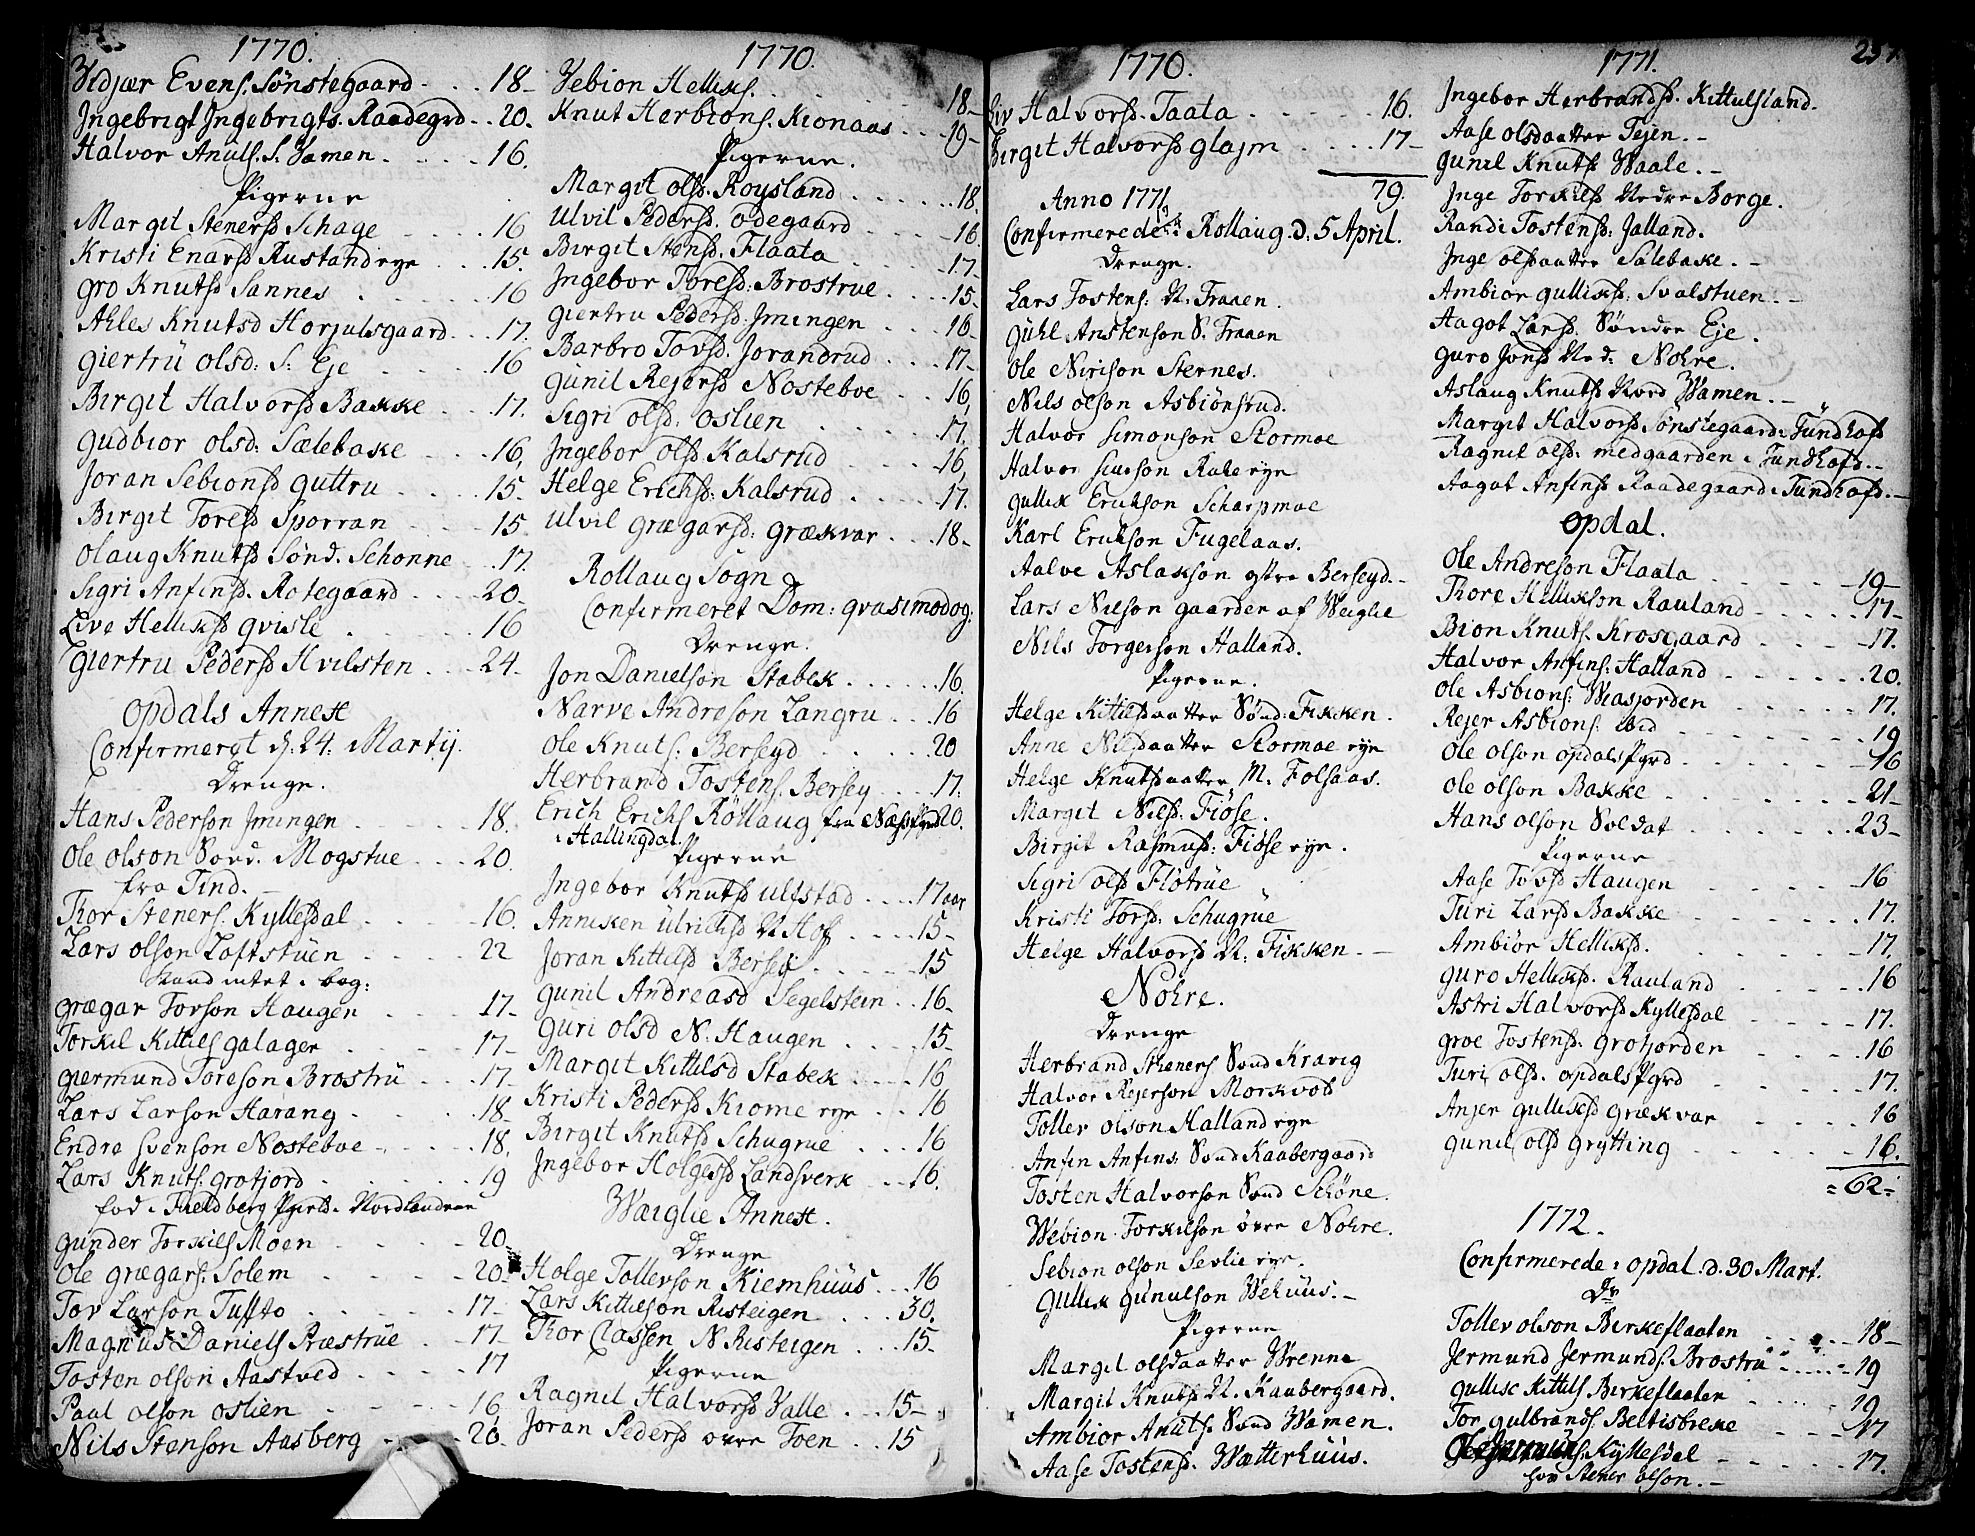 1770.
Vidjær Evens. Sønstegaard - - - 18 -
Ingebrigt Ingebrigts. Raadegrd - - 20.
Halvor Anuls. S. Wamen - - - - 16.
Pigerne
Margit Stenersd Schage - - - - 16
Kristi Enarsd Rustand eye - - - 15.
Gro Knutsd Sannes - - - - - 16
Ahles Knutsd Horjulsgaard - - 17.
Giertru olsd: S: Eje - - - - - 16
Birgit Halvorsd Bakke - - - 17.
Gudbior olsd: Sælebake - - - 16.
Joran Sebionsd Guttru - - - - 15.
Birgit Toresd Sporran - - - - 15.
Olaug Knutsd Sønd. Schonne - 17.
Sigri Anfinsd. Rotegaard - - - 20.
Live Helliksd qvisle - - - - - 16
Giertru Pedersd Hvilsten - - - 24.
Opdals Annext
Confirmeret d. 24. Martij.
Drenge.
Hans Pederson Imingen - - - - 18.
Ole olson Sønd. Mogstue - - - 20.
fra Tind.
Thor Steners. Kyllesdal - - - - 16.
Lars olson Loftstuen - - - - - 22
stand intet i bog:
Grægar Torson Haugen - - - - 17 -
Torkil Kittils galager - - - - - 17 -
Giermund Toreson Brostrü - - - 17 -
Lars Larson Harang - - - - - 18 -
Endre Svenson Nosteboe - - - - 18.
Lars Knuts. Grotjord - - - - - 19
fød i Fieldberg Pgrd. i Nordlandene
Gunder Torkils Moen - - - - 20.
Ole Grægars: Solem - - - - - 20 -
Tov Larson Tuffto - - - - - 17 -
Magnus Daniels Præstrüe - - 17 -
Tosten olson Aastved - - - - 17
Paul olson oslien - - - - - 16.
Nils Stenson Aasberg - - - 20.
1770.
Vebion Helliks. - - - - - - 18 -
Knut Herbions. Kionaas - - 19 -
Pigerne.
Margit olsd. Roysland - - - - - 18.
Ulvil Pedersd. odegaard - - - - 16.
Birgit Stensd. Flaata - - - - 17.
Ingebor Toresd: Brostrue - - - - 15.
Giertru Pedersd. Imingen - - - 16.
Barbro Tovsd. Jorandrud - - - 17.
Gunil Rejersd Nosteboe - - - 16.
Sigri olsd: oslien - - - - - 17.
Ingebor olsd Kalsrud - - - - 16.
Helge Erichsd: Kalsrud - - - - 17.
Ulvil Grægarsd: Grækvar - - - 18 -
Rollaug Sogn
Confirmeret Dom: qvasimodog:
Drenge.
Jon Danielson Stabek - - - - - 16.
Narve Andreson Langru - - - 16
Ole Knuts. Berseyd - - - - - 20
Herbrand Tostens. Bersey - - - 17.
Erich Erichs Röllaug fra Næss Pgrd 20.
i Hallingdal.
Pigerne
Ingebor Knutsd Ulfstad - - - 17 aar
Anniken Ulrichsd N Hof - - - 15 -
Joran Kittilsd Bersey - - - - 15
Gunil Andreasd Segelstein - - 16 -
Guri olsd N. Haugen - - - - 15 -
Margit Kittilsd Stabek - - - 16
Kristi Pedersd Kiome eye - - 16
Birgit Knutsd Schugrue - - - 16
Ingebor Holgesd Landsverk - - 16.
Wæglie Annext.
Drenge
Holge Tollevson Kiemhuus - - - 16
Lars Kittilson Risteigen - - - 30.
Thor Classen N Risteigen - - - 15 -
Pigerne
Ragnil Halvorsd Valle - - - 15 -
Joran Pedersd øvre Toen - - 15
1770.
Liv Halvorsd. Taata - - - - - - 16.
Birgit Halvorsd Glajm - - - - 17 -
79.
Anno 1771
Confirmerede i Rollaug. d: 5 April.
Drenge.
Lars Tostens: N. Fraaen.
Guhl Anstenson S. Fraaen
Ole Nirison Sternes.
Nils olson Asbiönsrud.
Halvor Simonson Stormoe
Halvor Siurson Rake eye
Gullik Erikson Scharpmoe
Karl Erikson Fugelaas.
Aalve Aslakson ystre Berseyd. -
Lars Nilson gaarden af Weiglie
Nils Torgerson Halland.
Pigerne.
Helge Kittilsdaatter Sönd: Fikken.
Anne Nilsdaatter Stormoe eye
Helge Knutsdaatter M. Folsaas.
Margit Nilsd. Fiöse.
Birgit Rasmusd: Fiöse eye.
Sigri olsd Flötrüe
Kristi Torsd. Schugrüe
Helge Halvorsd N: Fikken. -
Nohre.
Drenge
Herbrand Steners Sønd Kravig
Halvor Rejerson Morkvold
Tollev olson Halland eye
Anfin Anfins. Sønd Kaabergaard
Tosten Halvorson Sønd Schöne.
Webion Torkilson övre Nohre.
Sebion olson Sevlie eye.
Gullik Gunulson Wehuus. -
Pigerne
Margit olsdaatter Wrenne
Margit Knutsd N. Kaabergaard.
Ambior Anuls. Sønd Wamen.
Aase Tostensd. Wætterhuus.
1771.
257.
Ingebor Herbrandsd. Kittulsland.
Aase olsdaatter Tejen. -
Gunil Knutsd Waale. -
Inge Torkilsd Nedre Borge.
Randi Tostensd: Jalland.
Inge olsdaatter Sælebake. -
Ambior Gulliksd: Svalstuen. -
Aagot Larsd. Søndre Eje.
Guro Jonsd Ned: Nohre.
Aslaug Knutsd Nord Wamen. -
Margit Halvorsd Sönstegaard i Tündhofd
Ragnil olsd: medgaarden i Tundhofd. -
Aagot Anfinsd Raadegaard i Tundhofd. -
Opdal.
Ole Andreson Flaata - - - - - 19 -
Thore Hellikson Rauland - - - - 17 -
Bion Knuts. Krosgaard - - - - 17.
Halvor Anfins: Halland - - - - - 20.
Ole Asbions: Wiasjorden - - - - 17.
Rejer Asbions. ibid - - - - - - 19
Ole olson opdals Pgrd - - - - - 16
Ole olson Bakke - - - - - - 21 -
Hans olson Soldat - - - - - 23 -
Pigerne
Aase Tovsd Haugen - - - - - 16
Turi Larsd Bakke - - - - - - 17.
Ambiör Helliksd. - - - - - - 17.
Guro Helliksd. Rauland - - - - 16
Astri Halvorsd Kyllesdal - - - - 17.
Groe Tostensd. Grotjorden - - - 16
Turi olsd. opdals Pgrd - - - - 17.
Anjer Gulliksd Grækvar - - - - 16
Gunil olsd Grytting - - - - - 16.
= 62 =
1772.
Confirmerede i Opdal. d. 30 Mart.
Dr.
Tollev olson Birkeflaaten - - - - 18 -
Jermund Jermunds. Brostru - - - - 19
Gullik Kittils Birkeflaaten - - - - 19
Tor Gulbrands Beltisbreke - - - 17
Kyllesdal - - - - - 17.
Stener olson. -